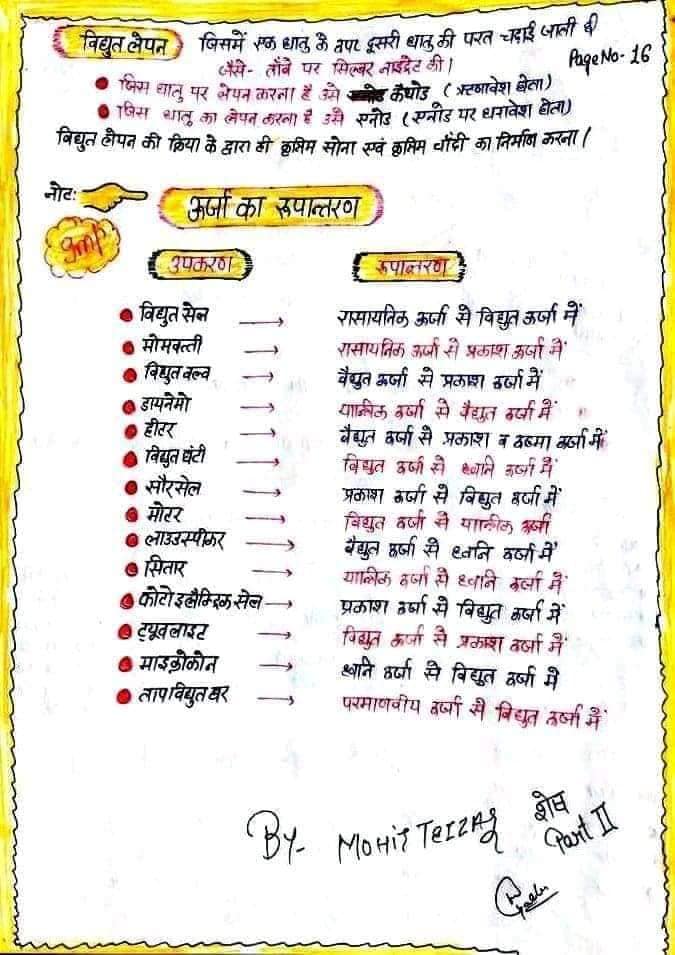 विद्युत लेपन जिसमें एक धातु के ऊपर दूसरी धातु की परत चढ़ाई जाती है
जैसे- ताँबे पर सिल्वर नाइट्रेट की।
Page No- 16
जिस धातु पर लेपन करना है उसे कैथोड (ऋणावेश होता)
जिस धातु का लेपन करना है उसे एनोड (एनोड पर धनावेश होता)
विद्युत लेपन की क्रिया के द्वारा ही कृत्रिम सोना एवं कृत्रिम चाँदी का निर्माण करना।
नोट: ऊर्जा का रूपान्तरण
Imp
उपकरण रूपान्तरण
विद्युत सेल → रासायनिक ऊर्जा से विद्युत ऊर्जा में
मोमबत्ती → रासायनिक ऊर्जा से प्रकाश ऊर्जा में
विद्युत बल्व → वैद्युत ऊर्जा से प्रकाश ऊर्जा में
डायनेमो → यान्त्रिक ऊर्जा से वैद्युत ऊर्जा में
हीटर → वैद्युत ऊर्जा से प्रकाश व ऊष्मा ऊर्जा में
विद्युत घंटी → विद्युत ऊर्जा से ध्वनि ऊर्जा में
सौर सेल → प्रकाश ऊर्जा से विद्युत ऊर्जा में
मोटर → विद्युत ऊर्जा से यान्त्रिक ऊर्जा
लाउडस्पीकर → वैद्युत ऊर्जा से ध्वनि ऊर्जा में
सितार → यान्त्रिक ऊर्जा से ध्वनि ऊर्जा में
फोटो इलैक्ट्रिक सेल → प्रकाश ऊर्जा से विद्युत ऊर्जा में
ट्यूब लाइट → विद्युत ऊर्जा से प्रकाश ऊर्जा में
माइक्रोफोन → ध्वनि ऊर्जा से विद्युत ऊर्जा में
ताप विद्युत घर → परमाणवीय ऊर्जा से विद्युत ऊर्जा में
BY- MOHIT
शेष
Part II